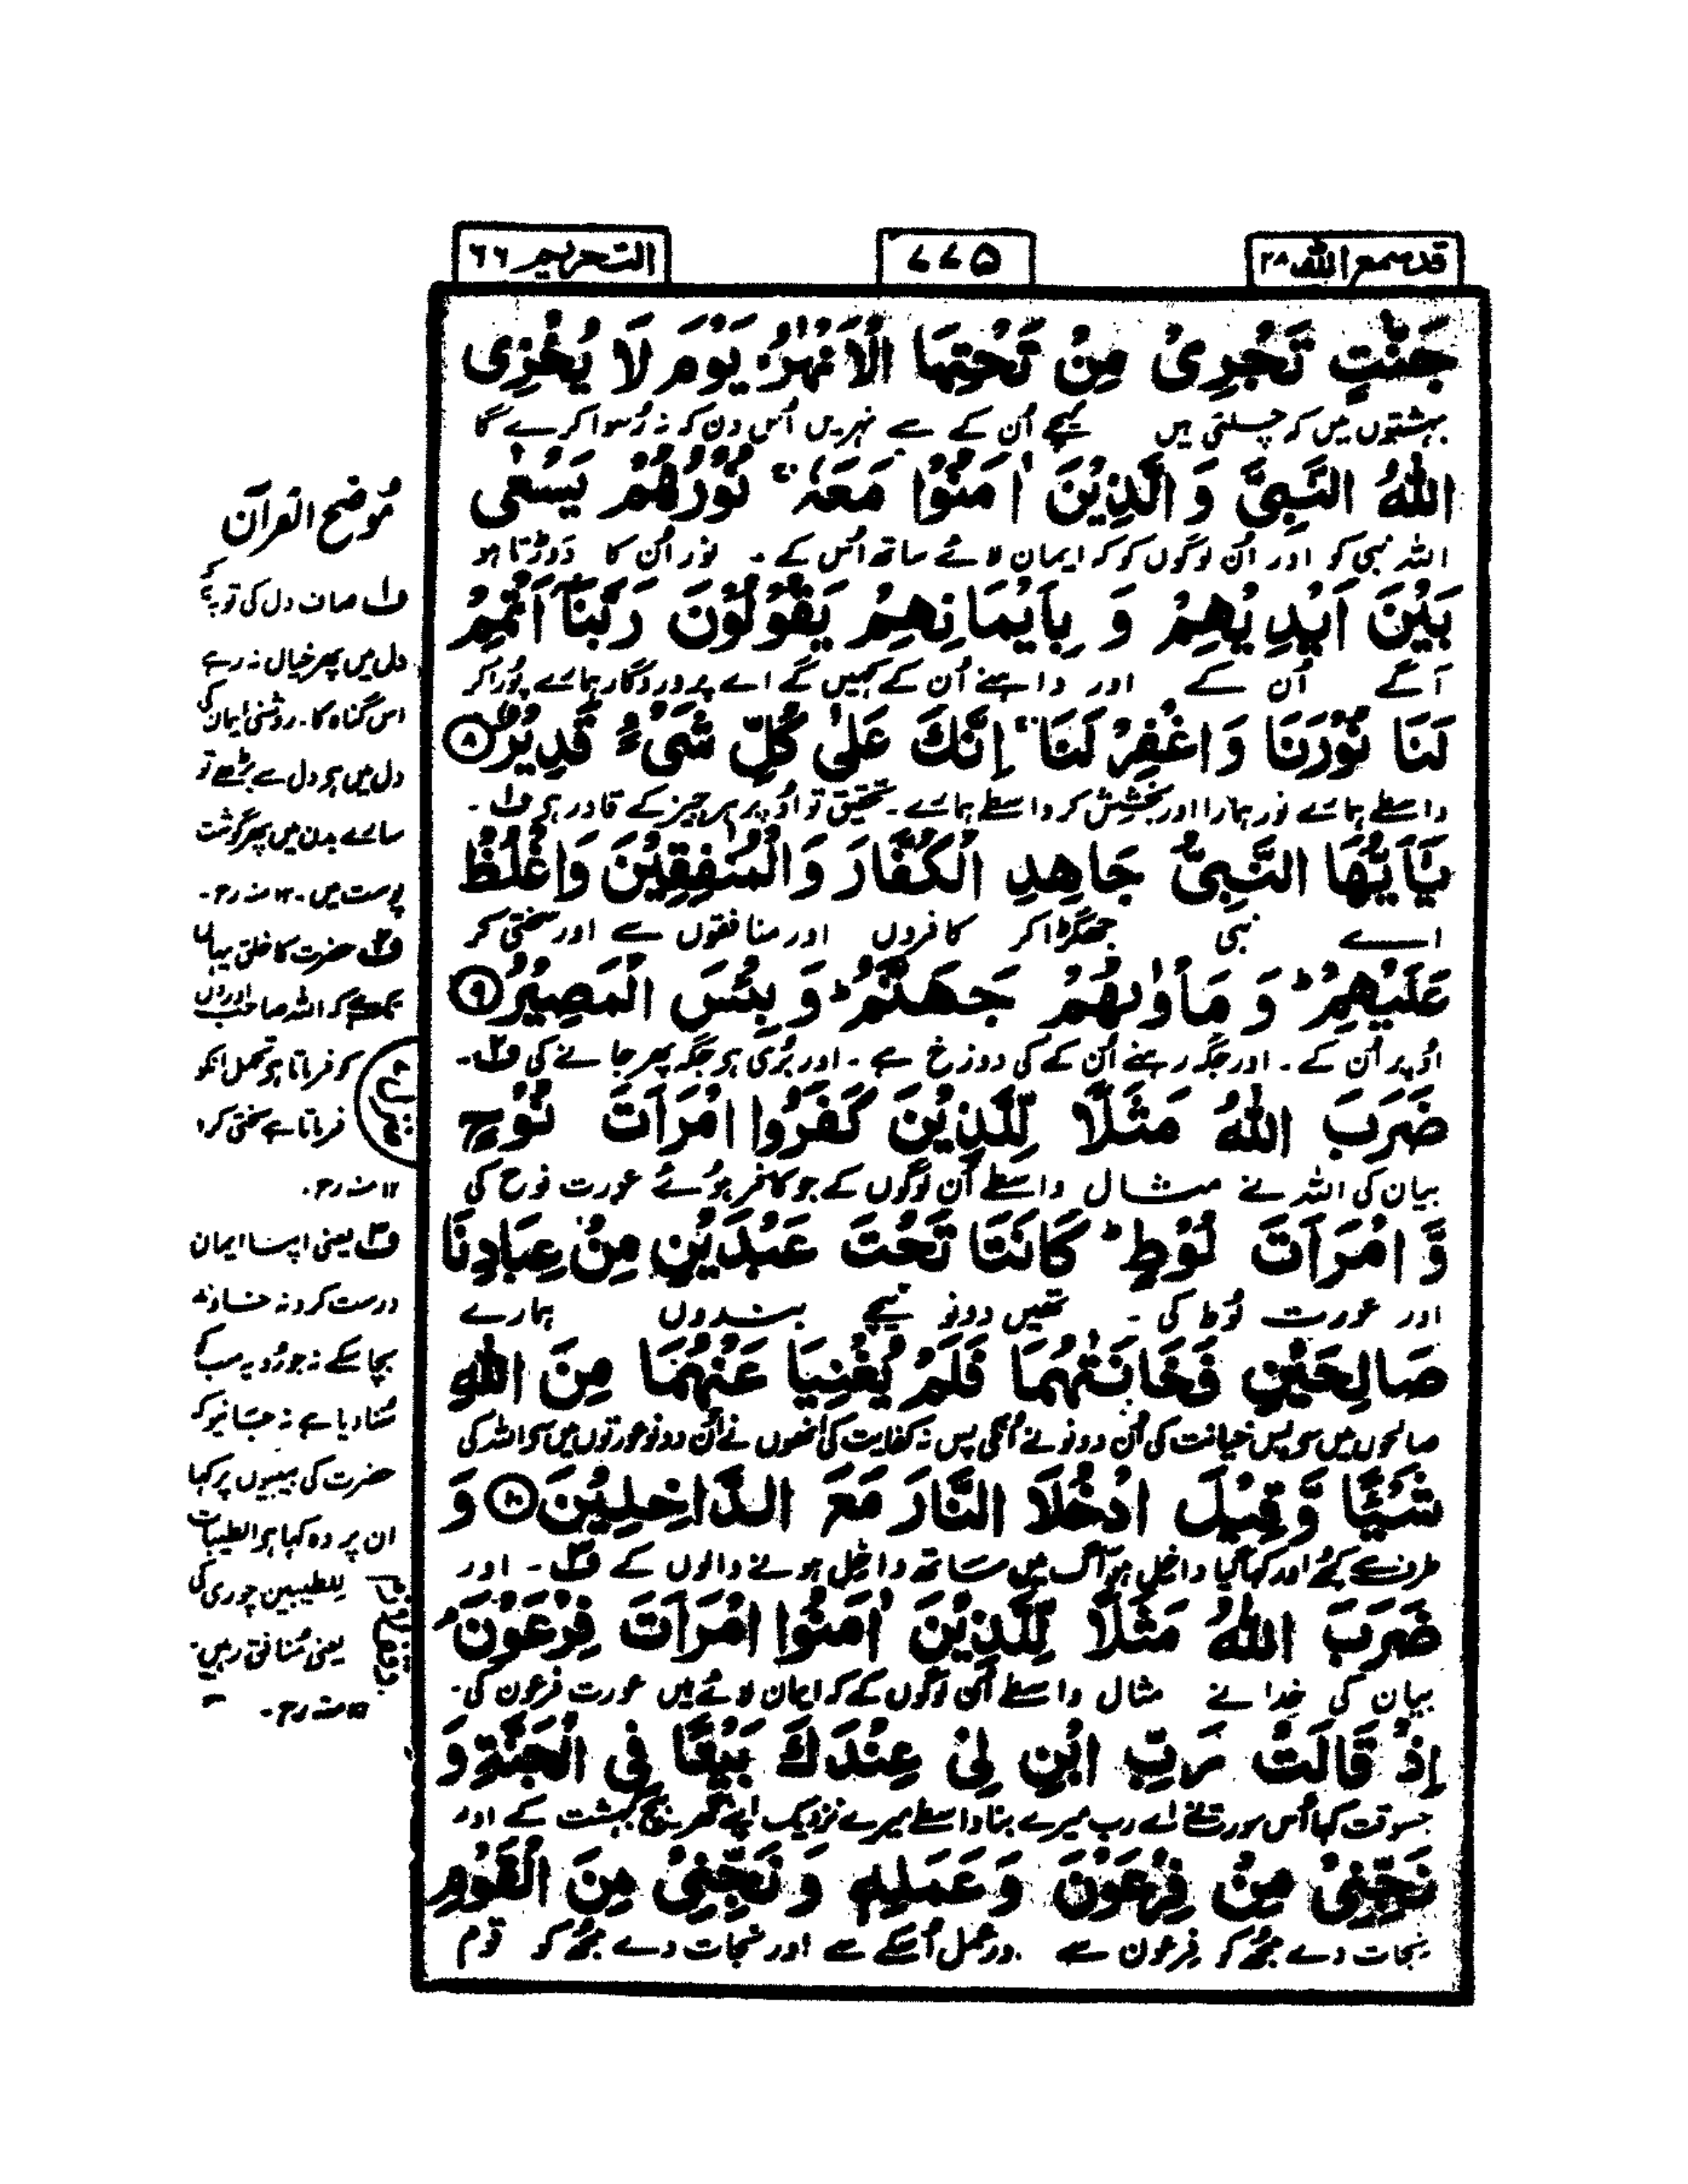 قد سمع الله ٢٨
٧٧٥
التحريم ٦٦
جَنّٰتٍ تَجْرِىْ مِنْ تَحْتِهَا الْاَنْهٰرُ ۙ يَوْمَ لَا يُخْزِى
بہشتوں میں کہ چلتی ہیں نیچے اُن کے سے نہریں اُس دن کہ نہ رُسوا کرے گا
اللّٰهُ النَّبِىَّ وَ الَّذِيْنَ اٰمَنُوْا مَعَهٗ ۚ نُوْرُهُمْ يَسْعٰى
اللہ نبی کو اور اُن لوگوں کو کہ ایمان لائے ساتھ اُس کے ۔ نور اُن کا دَوڑتا ہو
بَيْنَ اَيْدِيْهِمْ وَ بِاَيْمَانِهِمْ يَقُوْلُوْنَ رَبَّنَاۤ اَتْمِمْ
آگے اُن کے اور داہنے اُن کے کہیں گے اے پروردگار ہمارے پُورا کر
لَنَا نُوْرَنَا وَ اغْفِرْ لَنَا ۚ اِنَّكَ عَلٰى كُلِّ شَىْءٍ قَدِيْرٌ ۝٨
واسطے ہمارے نور ہمارا اور بخشِش کر واسطے ہمارے ۔ تحقیق تو اُوپر ہر چیز کے قادر ہو ف۱ ۔
يٰۤاَيُّهَا النَّبِىُّ جَاهِدِ الْكُفَّارَ وَ الْمُنٰفِقِيْنَ وَ اغْلُظْ
اے نبی جھگڑا کر کافروں اور منافقوں سے اور سختی کر
عَلَيْهِمْ ؕ وَ مَاْوٰىهُمْ جَهَنَّمُ ؕ وَ بِئْسَ الْمَصِيْرُ ۝٩
اُوپر اُن کے ۔ اور جگہ رہنے اُن کے کی دوزخ ہے ۔ اور بُری ہو جگہ پھر جانے کی ف۲ ۔
ضَرَبَ اللّٰهُ مَثَلًا لِّلَّذِيْنَ كَفَرُوا امْرَاَتَ نُوْحٍ
بیان کی اللہ نے مثال واسطے اُن لوگوں کے جو کافر ہوئے عورت نوح کی
وَّ امْرَاَتَ لُوْطٍ ؕ كَانَتَا تَحْتَ عَبْدَيْنِ مِنْ عِبَادِنَا
اور عورت لُوط کی ۔ تھیں دونو نیچے بندوں ہمارے
صَالِحَيْنِ فَخَانَتٰهُمَا فَلَمْ يُغْنِيَا عَنْهُمَا مِنَ اللّٰهِ
صالحوں میں سو پس خیانت کی اُن دونو نے اُنکی پس نہ کفایت کی اُنھوں نے اُن دونو عورتوں میں سو اللہ کی
شَيْـًٔا وَّ قِيْلَ ادْخُلَا النَّارَ مَعَ الدّٰخِلِيْنَ ۝١٠ وَ
طرف سے کچھ اور کہا گیا داخِل ہو آگ میں ساتھ داخِل ہونے والوں کے ف۳ ۔ اور
ضَرَبَ اللّٰهُ مَثَلًا لِّلَّذِيْنَ اٰمَنُوا امْرَاَتَ فِرْعَوْنَ ۘ
بیان کی خدا نے مثال واسطے اُن لوگوں کے کہ ایمان لائے ہیں عورت فرعون کی ۔
اِذْ قَالَتْ رَبِّ ابْنِ لِىْ عِنْدَكَ بَيْتًا فِى الْجَنَّةِ وَ
جسوقت کہا اُس عورت نے اے رب میرے بنا واسطے میرے نزدیک اپنے گھر بیچ بہشت کے اور
نَجِّنِىْ مِنْ فِرْعَوْنَ وَ عَمَلِهٖ وَ نَجِّنِىْ مِنَ الْقَوْمِ
نجات دے مجھ کو فِرعون سے اور عمل اُسکے سے اور نجات دے مجھ کو قوم
مُوضح القرآن
ف۱ صاف دل کی توبہ کہ
دل میں پھر خیال نہ رہے
اس گناہ کا ۔ روشنی ایمان کی
دل میں ہو دل سے بڑھے تو
سارے بدن میں پھر گوشت
پوست میں ۔ ۱۲ منہ رح ۔
ف۲ حضرت کا خلق یہاں
تک ہے کہ اللہ صاحب اوروں
کو فرماتا ہو تحمل انکو
فرماتا ہے سختی کر
۱۲ منہ رح ۔
ف۳ یعنی اپنا ایمان
درست کرو نہ خاوند
بچا سکے نہ جورُو یہ سب کو
سُنا دیا ہے نہ جانیو کہ
حضرت کی بیبیوں پر کہا
ان پر وہ کہا ہو الطیبات
للطیبین چوری کی
یعنی مُنافق رہیں ۔
۱۲ منہ رح ۔